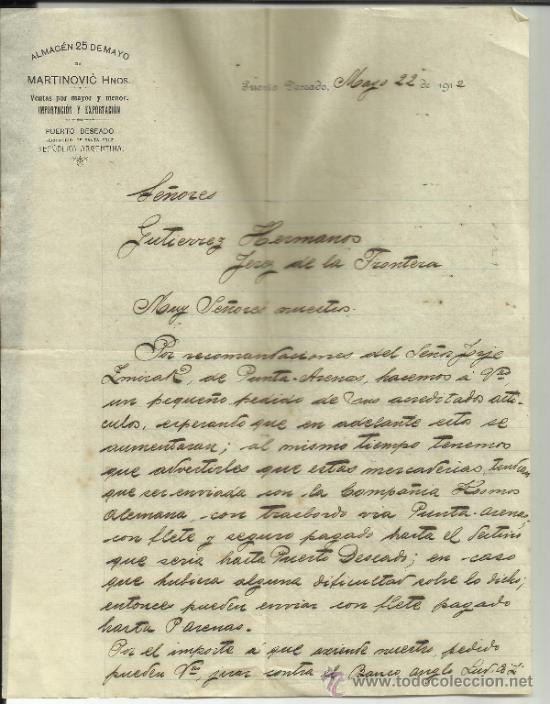 ALMACÉN 25 DE MAYO
DE
MARTINOVIĆ HNOS.
Ventas por mayor y menor.
IMPORTACIÓN Y EXPORTACIÓN
PUERTO DESEADO
REPÚBLICA ARGENTINA.
Puerto Deseado, Mayo 22 de 1912
Señores
Gutierrez Hermanos
Jerez de la Frontera
Muy Señores nuestros.
Por recomantaciones del Señor Jorje
Zmirak, de Punta-Arenas, hacemos á Vs
un pequeño pedido de sus acredotados artí-
culos, esperanto que en adelante esto se
aumentaran; al mismo tiempo tenemos
que advertirles que estas mercaderias, tendran
que ser enviada con la Compañia Kosmos
Alemana con trasbordo via Punta-arenas,
con flete y seguro pagado hasta el destino
que seria hasta Puerto Deseado; en caso
que hubiera alguna dificultad sobre lo dicho;
entonces pueden enviar con flete pagado
hasta P. Arenas.
Por el importe á que asciende nuestro pedido
pueden Vs, jirar contra el Banco anglo
todocoleccion
© www.todocoleccion.net